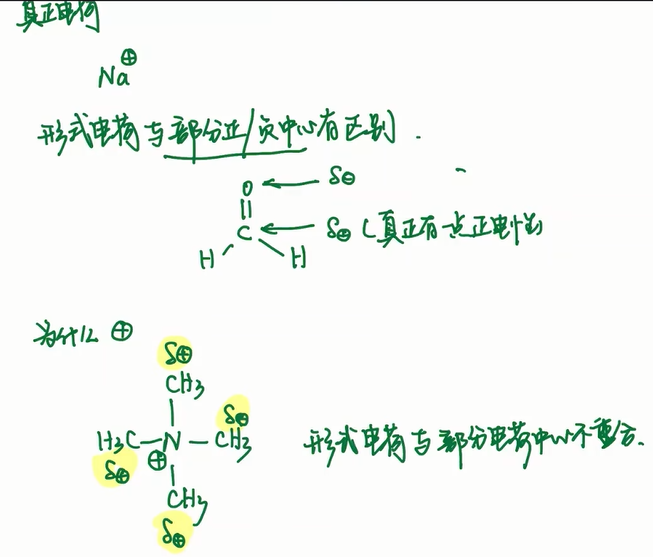 真正电荷
Na⊕
形式电荷与部分正/负中心有区别.
O ← δ⊖
||
C ← δ⊕ (真正有一点正电性)
H H
为什么 ⊕
δ⊕
CH3
δ⊕
H3C—N—CH3
⊕
δ⊕
CH3
δ⊕
形式电荷与部分电荷中心不重合.